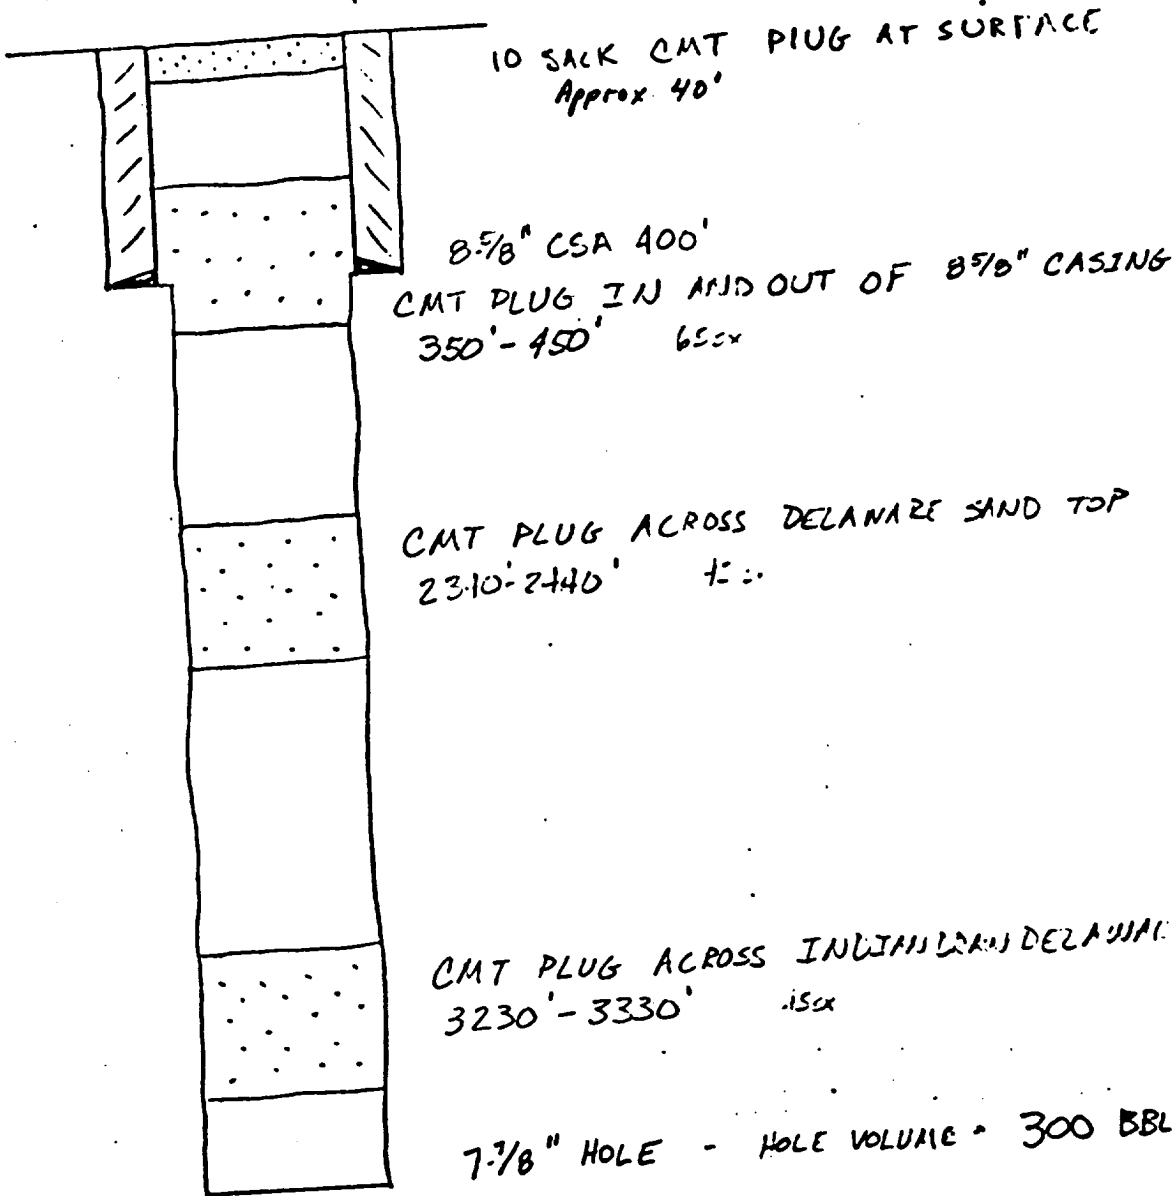 10 SACK CMT PLUG AT SURFACE
Approx 40'
8 5/8" CSA 400'
CMT PLUG IN AND OUT OF 8 5/8" CASING
350'-450' 65sx
CMT PLUG ACROSS DELAWARE SAND TOP
CMT PLUG ACROSS
3230'-3330'
7-7/8" HOLE - HOLE VOLUME - 300 BBL